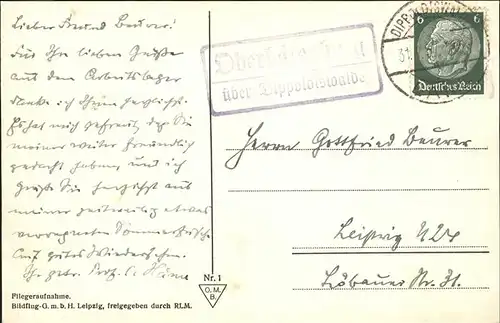 Lieber Freund Beurer!
Für Ihre lieben Grüße
aus dem Arbeitslager
danke ich Ihnen herzlichst.
Es hat mich gefreut, daß Sie
meiner weiter freundlich
gedacht haben, und ich
grüße Sie herzlichst aus
meiner zeitweilig etwas
verregneten Sommerfrische.
Auf gutes Wiedersehen.
Ihr getr.
Fliegeraufnahme.
Bildflug-G. m. b. H. Leipzig, freigegeben durch RLM.
Nr. 1
O. M.
B.
über Dippoldiswalde
DIPPOLDISWAL
31.
6
6
Deutsches Reich
Herrn Gottfried Beurer
Leipzig N 24
Löbauer Str. 31.